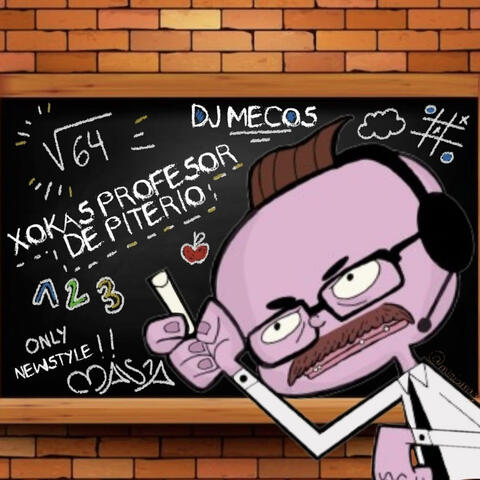 DJ MECOS
√64
XOKAS PROFESOR
DE PITERIO
1 2 3
ONLY
NEWSTYLE!!